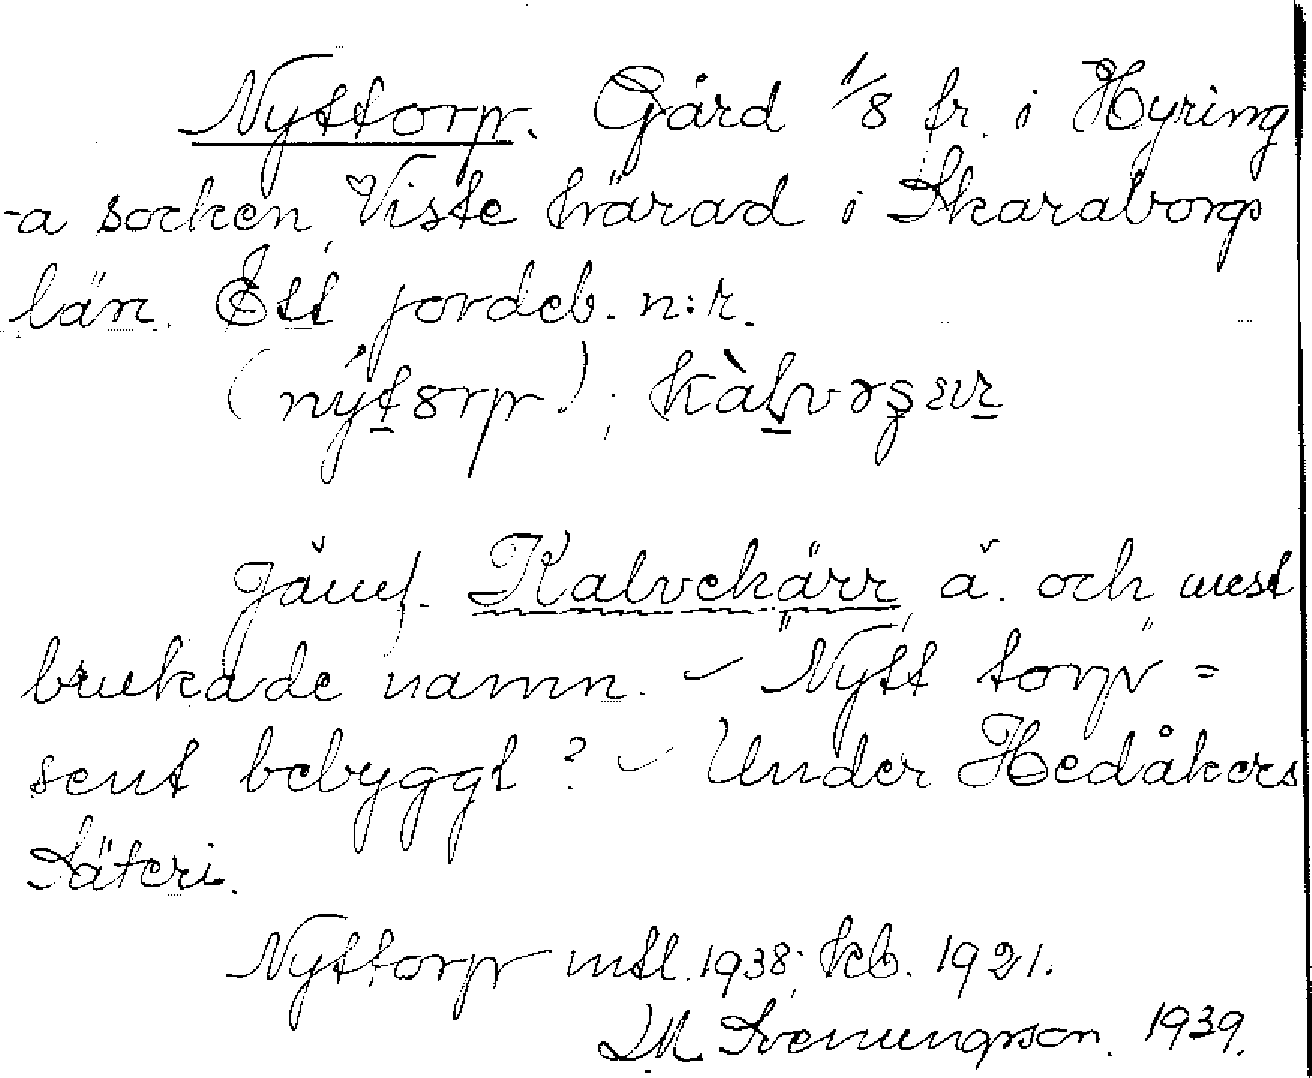 Nyttorp. Gård 1/8 fr. i Hyring
-a socken, Viste härad i Skaraborgs
län. Ett jordeb. n:r.
(nýtorp);
Jämf. Kalvekärr, ä. och mest
brukade namn. - "Nytt torp" =
sent bebyggt? - Under Hedåkers
Säteri.
Nyttorp mtl. 1938; kb. 1921.
LM Svenungsson. 1939.